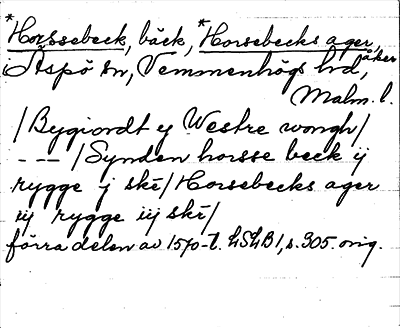 *Horssebeck, bäck, *Horsebecks ager, åker
i Äspö sn, Vemmenhögs hd,
Malm. l.
/Bygiordt ey Westre wongh/
--- /Synden horsse beck ij
rygge j skè/ Horsebecks ager
iij rygge iij skè/
förra delen av 1570-t. LSLB 1, s. 305. orig.